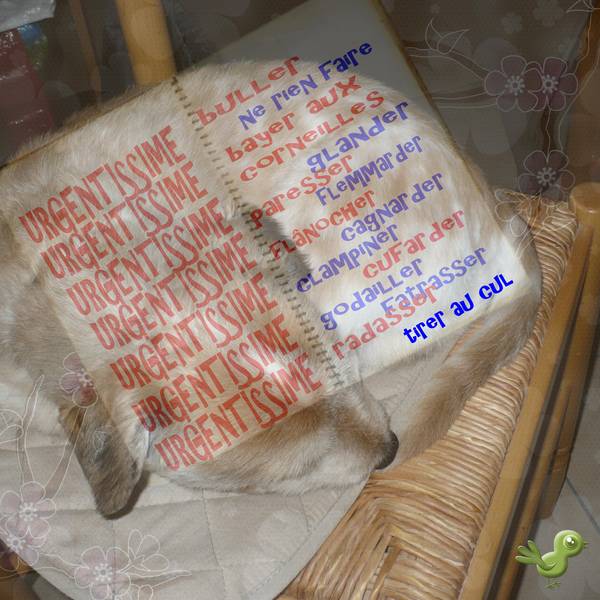 URGENTISSIME
URGENTISSIME
URGENTISSIME
URGENTISSIME
URGENTISSIME
URGENTISSIME
URGENTISSIME
buller
Ne rien Faire
bayer aux
corneilles
glander
paresser
Flemmarder
Flânocher
cagnarder
clampiner
cuFarder
godailler
Fatrasser
radasser
tirer au cul